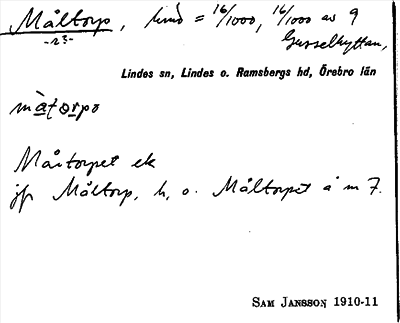 Måltorp, hmd = 16/1000, 16/1000 av 9
-23- Gusselhyttan,
Lindes sn, Lindes o. Ramsbergs hd, Örebro län
màtorpə
Måtorpet ek
jfr Måltorp, h, o. Måltorpet å m 7.
SAM JANSSON 1910-11